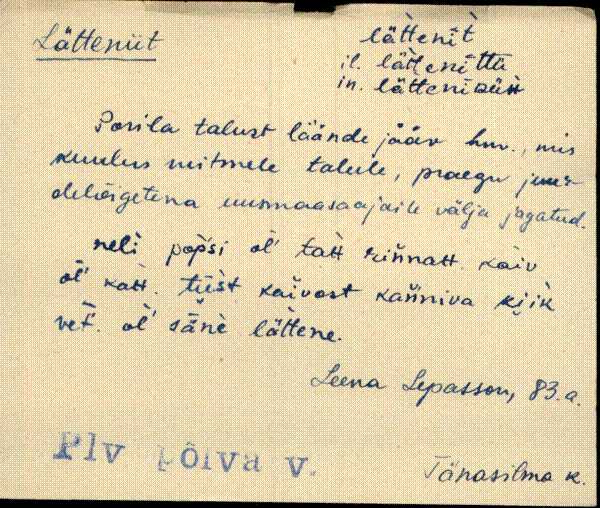 Lätteniit
lät̀tenìt̀
il. lät̀tenìttü
in. lät̀tenìzüH
Posila talust läände jääv hm., mis
kuulus mitmele talule, praegu juur-
delõigetena uusmaasaajaile välja jagatud.
neli pop̀si ol̀ tàH rinnaH. kaìv
ol̀ kaH. tüśt kaìvost kanniva kjk
vet̀. ol̀ säne lättene.
Leena Lepasson, 83.a.
Plv Põlva v.
Tänasilma k.